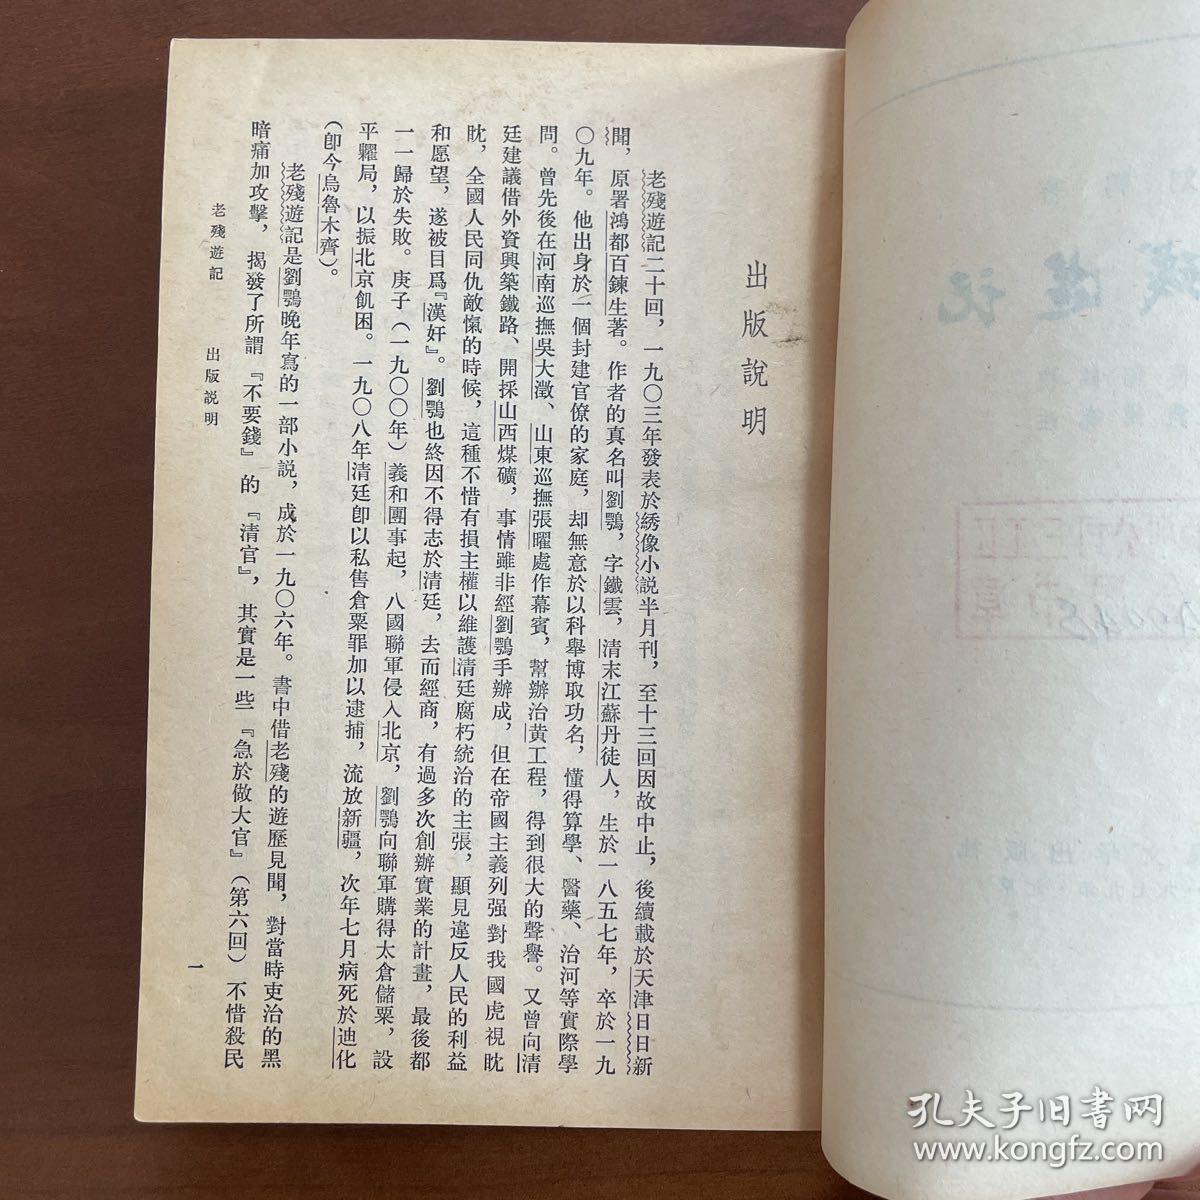 出版說明
老殘遊記二十回，一九〇三年發表於綉像小説半月刊，至十三回因故中止，後續載於天津日日新
聞，原署鴻都百鍊生著。作者的真名叫劉鶚，字鐵雲，清末江蘇丹徒人，生於一八五七年，卒於一九
〇九年。他出身於一個封建官僚的家庭，却無意於以科舉博取功名，懂得算學、醫藥、治河等實際學
問。曾先後在河南巡撫吳大澂、山東巡撫張曜處作幕賓，幫辦治黃工程，得到很大的聲譽。又曾向清
廷建議借外資興築鐵路、開採山西煤礦，事情雖非經劉鶚手辦成，但在帝國主義列强對我國虎視眈
眈，全國人民同仇敵愾的時候，這種不惜有損主權以維護清廷腐朽統治的主張，顯見違反人民的利益
和愿望，遂被目爲『漢奸』。劉鶚也終因不得志於清廷，去而經商，有過多次創辦實業的計畫，最後都
一一歸於失敗。庚子（一九〇〇年）義和團事起，八國聯軍侵入北京，劉鶚向聯軍購得太倉儲粟，設
平糶局，以振北京飢困。一九〇八年清廷卽以私售倉粟罪加以逮捕，流放新疆，次年七月病死於迪化
（卽今烏魯木齊）。
老殘遊記是劉鶚晚年寫的一部小説，成於一九〇六年。書中借老殘的遊歷見聞，對當時吏治的黑
暗痛加攻擊，揭發了所謂『不要錢』的『清官』，其實是一些『急於做大官』（第六回）不惜殺民
老殘遊記 出版説明
一
孔夫子旧书网
www.kongfz.com